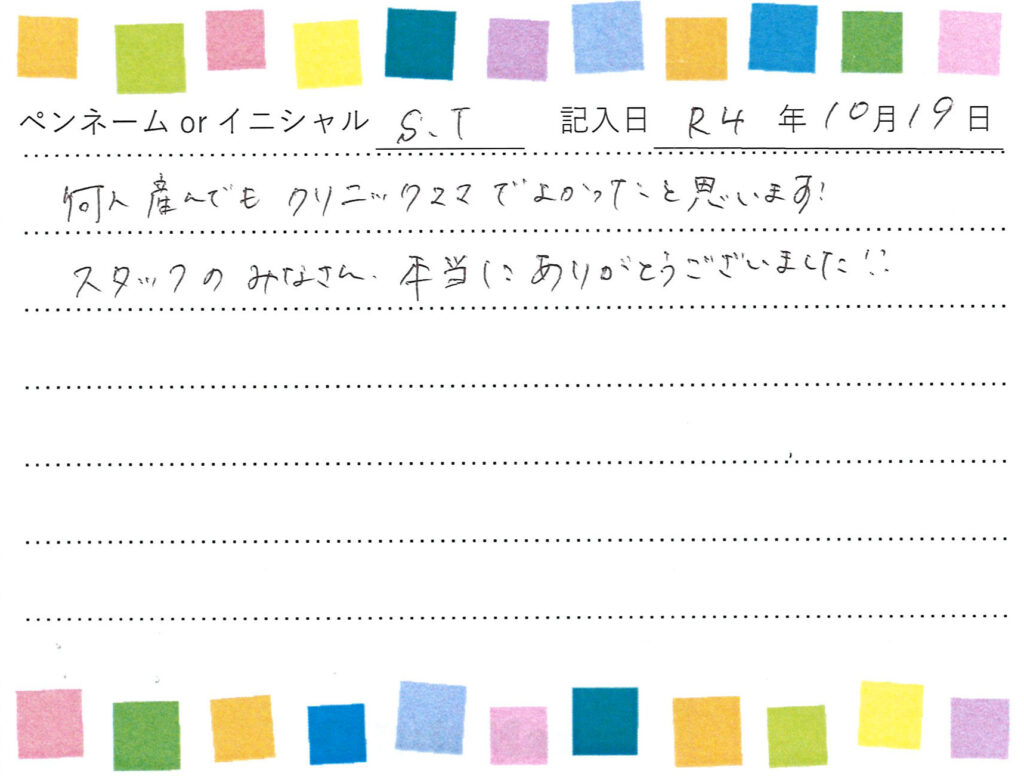 ペンネーム or イニシャル S.T 記入日 R4 年 10月19日
何人産んでも クリニックママ でよかったと思います!
スタッフの みなさん、本当に ありがとうございました!!